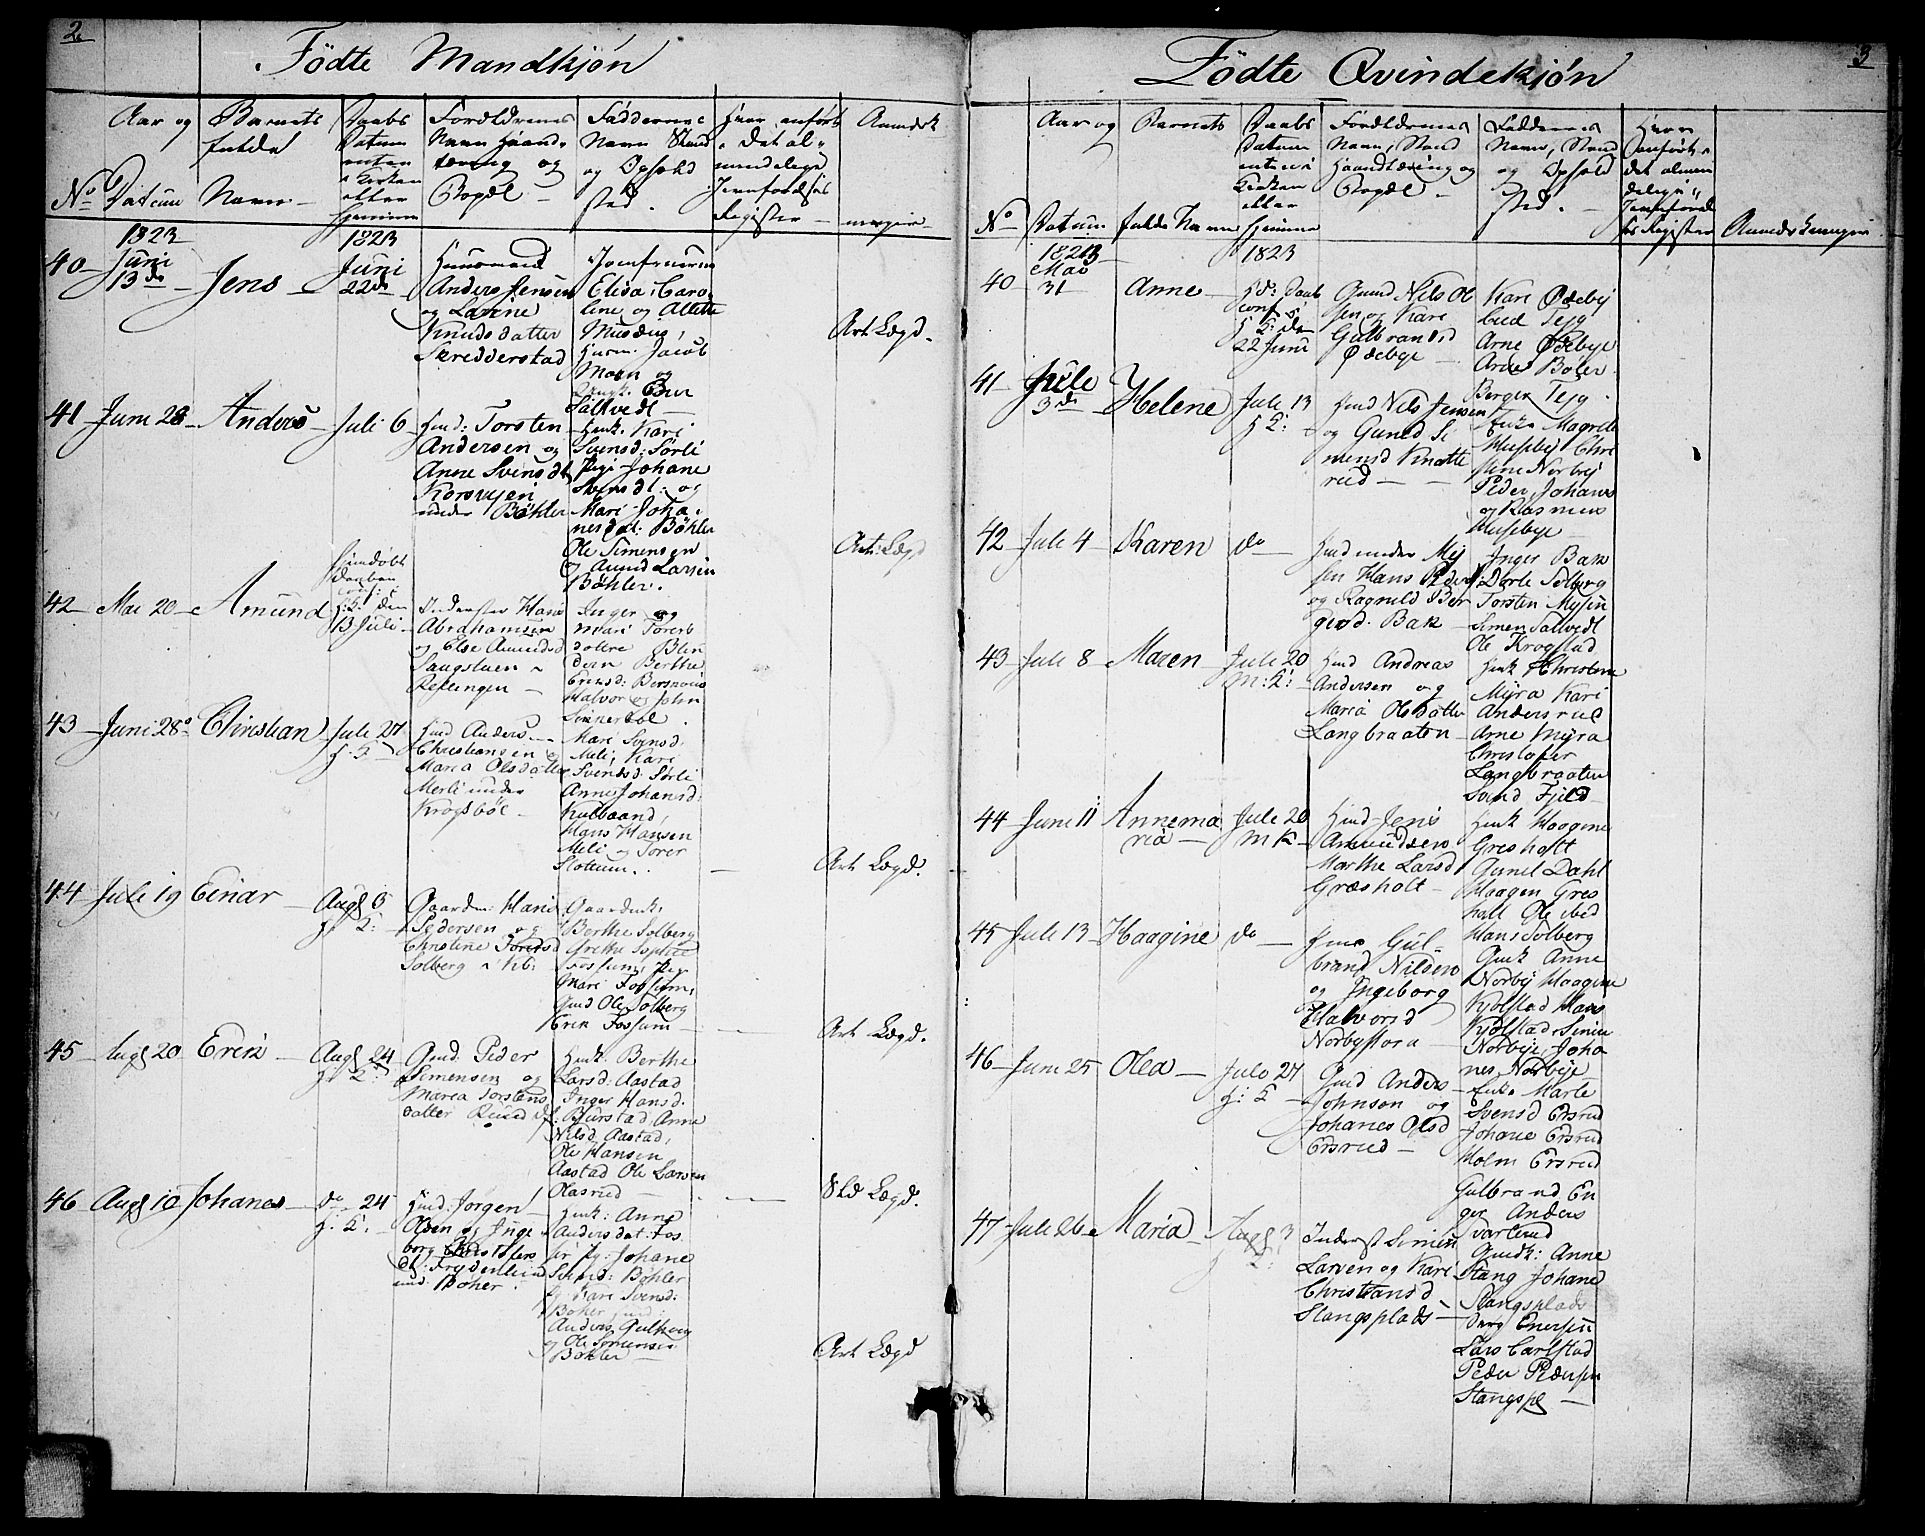 2
Fødte Mandkjøn
No
Aar og
Datum
Barnets
fulde
Navn
Daabs
Datum
enten
i Kirken
eller
hjemme
Forældrenes
Navn Haand-
tering og
Bopæl
Faddernes
Navn Stand
og Opholds
sted.
Hvor anført
i det al-
mindelige
Jevnførelses
Register
Anmærk
ninger
40
1823
Juni
13de
Jens
1823
Juni
22de
Huusmand
Anders Jensen
og Lavine
Knudsdatter
Skredderstad
Jomfruerne
Elisa, Caro-
line og Alette
Musæus,
Huusm. Jacob
Moen og
Sältvedt
Art Lægd.
41
Juni 28
Anders
Juli 6
Huusd: Torsten
Andersen og
Anne Svensdt
Korsvejen
under Bøhler
Huusk. Kari
Svensd: Sørli
Pige Johane
Svensdt: og
Mari Joha-
nesdat: Bøhler
Ole Simensen
og Amund Larsen
Bøhler.
Art: Lægd
42
Mai 20
Amund
hjemdøbt
Daaben
conf: i
H: K: den
13 Juli
Inderster Hans
Abrahamsen
og Else Amundsd
Saugstuen
Reflingen
Inger og
Mari Torers
dattre Blin
deren Berthe
Ericksd:
Halvor og John
Sinnerdal
43
Juni 28
Christian
Jule 27
H: K
Hmd Anders
Christiansen
Maria Olsdatter
Merli under
Krogsbøl
Mari Svensd.
Meli, Kari
Svensd. Sørli
Anne Johansd:
Kulbaand,
Hans Hansen
Meli og Torer
Slottum.
Art Lægd.
44
Jule 19
Einar
Augs 5
H K:
Gaardm: Hans
Pedersen og
Christine Toresd
Solberg
Gaardmk:
Berthe Solberg
Grethe
Fossum, Pige
Mari Fossum,
Gmd Ole Solberg
Erik Fossum
Art Lægd.
45
Augs 20
Erik
Augs 24
H K:
Gmd: Peder
Simensen og
Maria Torstens
datter Ruud
Hmk: Berthe
Larsd: Aastad
Inger Hansd.
Bjurstad Anne
Nilsd Aastad,
Ole Hansen
Aastad Ole Larsen
Olasrud
Sld Lægd.
46
Augs 10
Johanes
do 24
H: K:
Hmd: Jørgen
Olsen og Inge
borg Christofers
dt: Frydenlund
und. Bøhler
Hmk: Anne
Andersdat: Fos
ser Pg: Johane
Svensd: Bøhler
Pg: Kari Svensd:
Bøhler
Anders Gulberg
og Ole Simensen
Bøhler
Art Lægd
3
Fødte Qvindekjøn
No
Aar og
Datum
Barnets
fulde Navn
Daabs
Datum
enten i
Kirken
eller
hjemme
Forældrenes
Navn, Stand
Haandtæring og
Bopæl
Faddernes
Navn, Stand
og Ophold
sted.
Hvor
anført i
det almin
delige
Jevnførel
ses Register
Anmærkninger
40
1823
Mai
31
Anne
1823
Hd: Daab
conf i
H K: den
22 Juni
Gmd Nils Ol
sen og Kari
Gulbrandsd
Ødebye
Kari Ødeby
Lied Tejg
Arne Ødebye
Arne Boler
Berger Tejg
41
Jule
3de
Helene
Jule 13
H K:
Hmd Nils Jensen
og Guned Si
mensd Knatte
rud
Enke Magrete
Huseby Chri
stine Norbye
Peder Johans
og Rasmus
Husebye
42
Jule 4
Karen
do
Hmd under My
sen Hans Peders:
og Ragnild Ber
gersd. Bak
Inger Bak
Dorte Solberg
Torsten Mysen
Simen Saltvedt
Ole Krogstad
43
Jule 8
Maren
Jule 20
M: K:
Hmd Andreas
Andersen og
Maria Olsdatter
Langbraaten
Hmk Christine
Myra Kari
Andersrud
Arne Myra
Christofer
Langbraaten
Svend Fjeld
44
Juni 11
Annema
ria
Jule 20
M K
Hmd Jens
Amundsen
Marthe Larsd
Græsholt
Hmk Haagine
Gresholt
Gunel Dahl
Haagen Gres
holt Ole ibid
Hans Solberg
45
Jule 13
Haagine
do
Gul-
brand Nilsen
og Ingeborg
Halvorsd
Norbystora
Gmk Anne
Norby Haagine
Kjølstad Hans
Kjølstad Simen
Norbye Joha
nes Norbye
46
Juni 25
Olea
Jule 27
H: K
Gmd Anders
Johnsen og
Johanes Olsd
Ersrud
Enke Marte
Svensd Ersrud
Johane Ersrud
Holm Ersrud
Gulbrand En
ger Anders
Svartrud
47
Jule 26
Maria
Augs 3
K:
Inderst Simen
Larsen og Kari
Christiansd
Stangsplads
Gmdk: Anne
Stang Johane
Stangsplads
Enersen
Lars Carlstad
Peder Pedersen
Stangspl